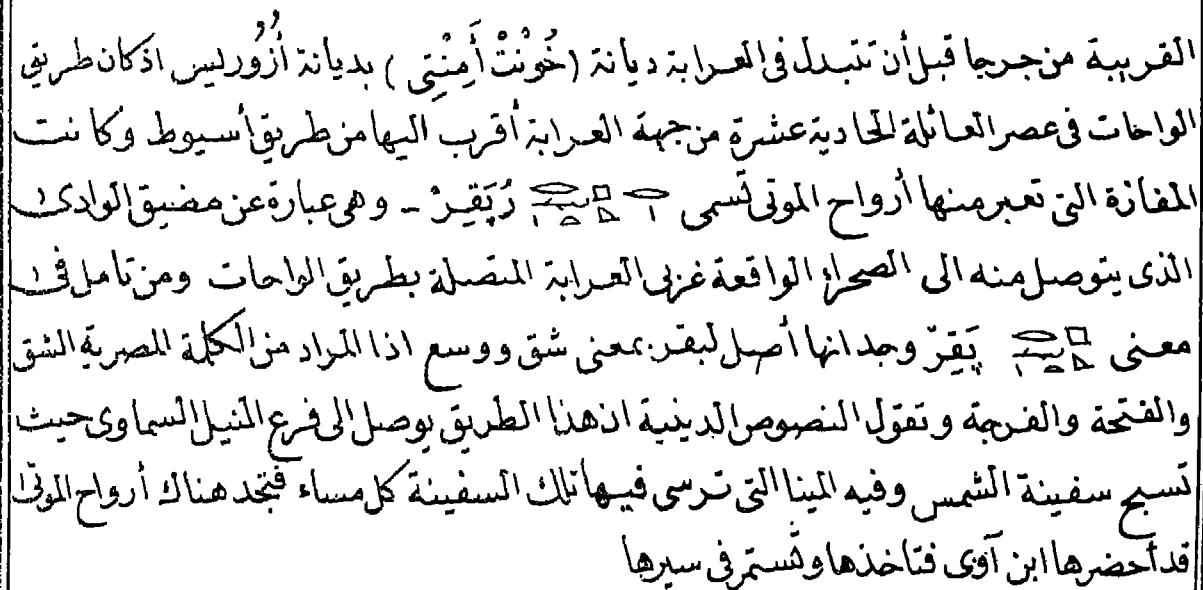 القريبة من جرجا قبل أن تتبدل في العرابة ديانة (خُونْتْ أَمِنْتِى) بديانة أُزُوريس اذ كان طريق
الواحات فى عصر العائلة الحادية عشرة من جهة العرابة أقرب اليها من طريق أسيوط وكانت
المفازة التى تعبر منها أرواح الموتى تسمى رُبَقِرْ - وهى عبارة عن مضيق الوادى
الذى يتوصل منه الى الصحراء الواقعة غربى العرابة المتصلة بطريق الواحات ومن تامل فى
معنى بَقِرّ وجد انها أصل لبقر بمعنى شق ووسع اذا المراد من الكلمة المصرية الشق
والفتحة والفرجة وتقول النصوص الدينية ان هذا الطريق يوصل الى فرع النيل السماوى حيث
تسبح سفينة الشمس وفيه المينا التى ترسى فيها تلك السفينة كل مساء فتجد هناك أرواح الموتى
قد أحضرها ابن آوى فتاخذها وتستمر فى سيرها